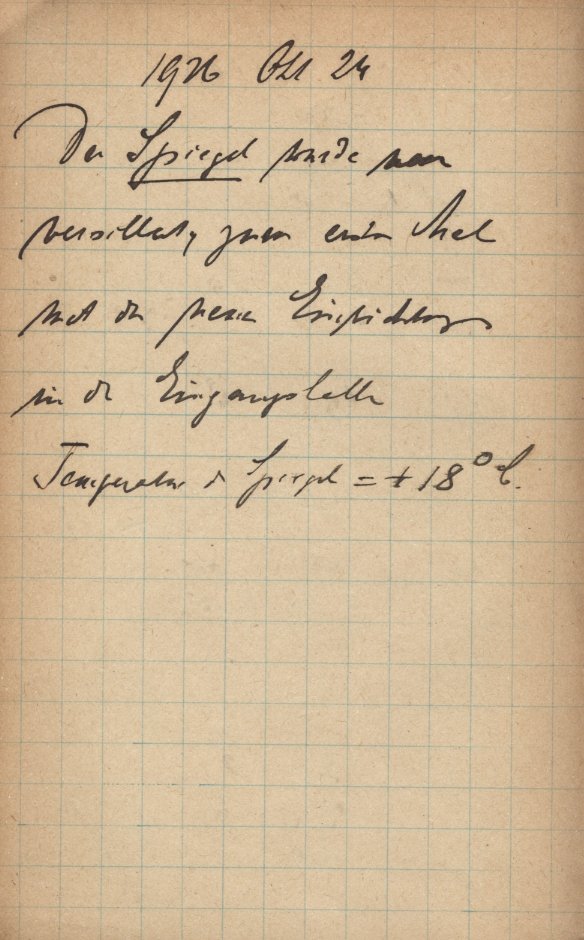 1926 Okt 24
Der Spiegel wurde neu
versilbert, zum ersten Mal
mit der neuen Einrichtung
in der Eingangshalle
Temperatur d Spiegel = + 18° C.